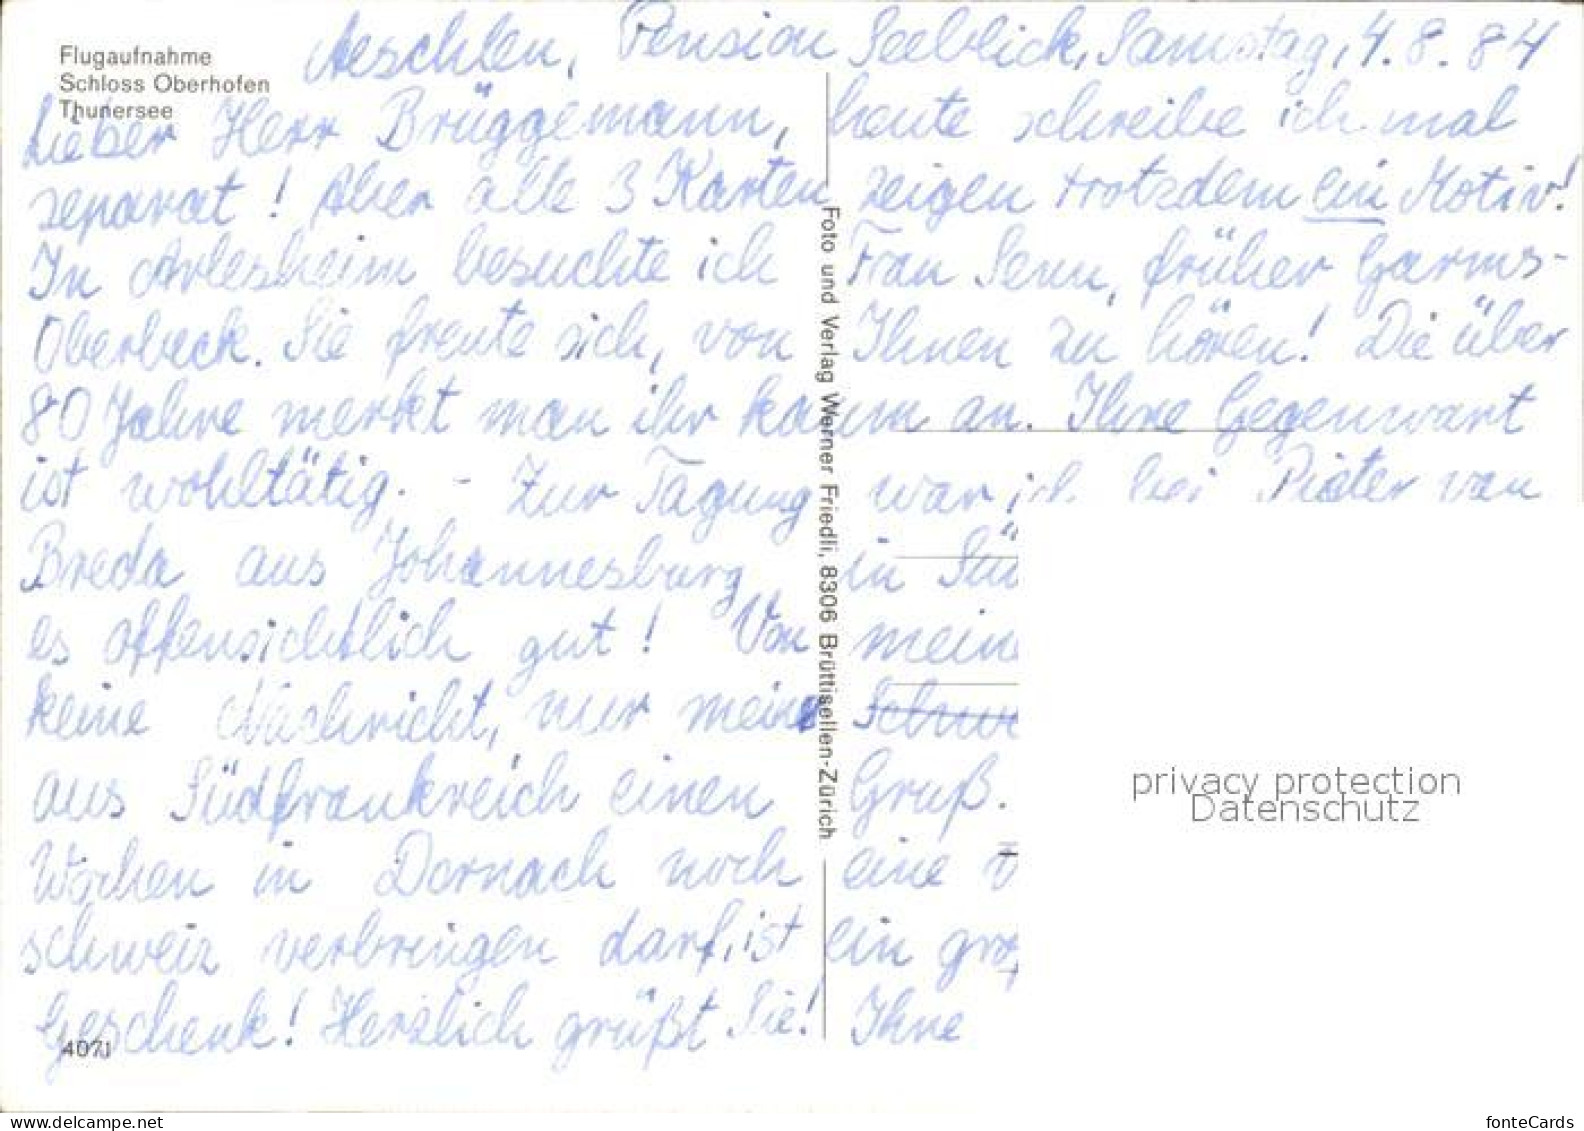 Flugaufnahme
Schloss Oberhofen
Thunersee
Aeschlen, Pension Seeblick, Samstag, 4.8.84
Lieber Herr Brüggemann, heute schreibe ich mal
separat! Aber alle 3 Karten zeigen trotzdem ein Motiv!
In Arlesheim besuchte ich Frau Senn, früher Garms-
Oberbeck. Sie freute sich, von Ihnen zu hören! Die über
80 Jahre merkt man ihr kaum an. Ihre Gegenwart
ist wohltätig. - Zur Tagung war ich bei Pieter van
Breda aus Johannesburg in Sü
es offensichtlich gut! Von meine
keine Nachricht, nur meine Schw
aus Südfrankreich einen Gruß.
Wochen in Dornach noch eine
schweiz verbringen darf, ist ein gro
Geschenk! Herzlich grüßt Sie! Ihne
4071
Foto und Verlag Werner Friedli, 8306 Brüttisellen-Zürich
privacy protection
Datenschutz
www.delcampe.net
fonteCards